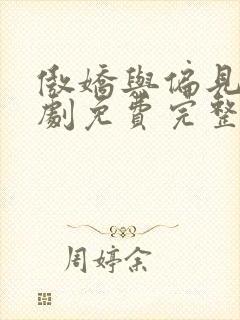 傲嬌與偏見
劇免費完整
周婷余